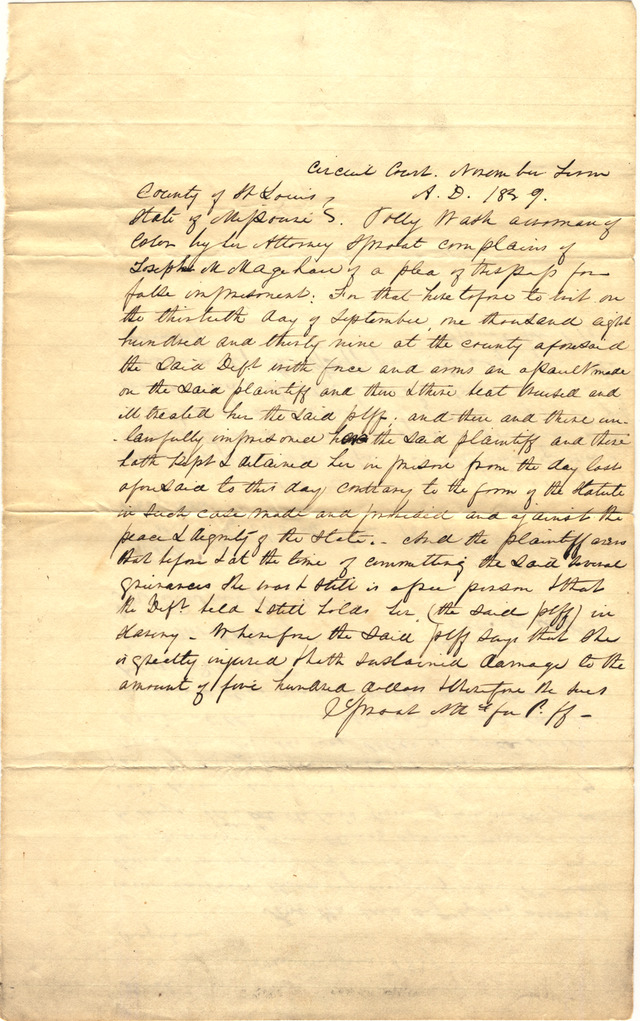 Circuit Court. November Term
County of St Louis, A. D. 1839.
State of Missouri S. Polly Wash a woman of
Color by her Attorney Sproat complains of
Joseph M Magehan of a plea of trespass for
false imprisonent: For that heretofore to wit on
the thirtieth day of September, one thousand eight
hundred and thirty nine at the county aforesaid
the said Deft with force and arms an assault made
on the said plaintiff and then & there beat bruised and
ill treated her the said plff; and then and there un-
-lawfully imprisoned the said plaintiff and there
hath kept & detained her in prison from the day last
aforesaid to this day contrary to the form of the statute
in such case made and provided and against the
peace & dignity of the State. - And the plaintiff avers
that before & at the time of committing the said several
grievances she was & still is a free person & that
the Deft held & still holds her (the said plff) in
slavery - Wherefore the said plff says that she
is greatly injured & hath sustained damage to the
amount of five hundred dollars & therefore she sues
Sproat Atty for P. ff -